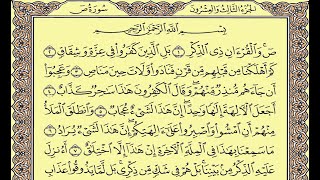 الجزء الثالث والعشرون سورة ص
بِسْمِ اللَّهِ الرَّحْمَٰنِ الرَّحِيمِ
صٓ وَالْقُرْءَانِ ذِي الذِّكْرِ ١ بَلِ الَّذِينَ كَفَرُوا فِي عِزَّةٍ وَشِقَاقٍ ٢
كَمْ أَهْلَكْنَا مِن قَبْلِهِم مِّن قَرْنٍ فَنَادَوا وَّلَاتَ حِينَ مَنَاصٍ ٣ وَعَجِبُوا
أَن جَاءَهُم مُّنذِرٌ مِّنْهُمْ وَقَالَ الْكَافِرُونَ هَٰذَا سَاحِرٌ كَذَّابٌ ٤
أَجَعَلَ الْآلِهَةَ إِلَٰهًا وَاحِدًا إِنَّ هَٰذَا لَشَيْءٌ عُجَابٌ ٥ وَانطَلَقَ الْمَلَأُ
مِنْهُمْ أَنِ امْشُوا وَاصْبِرُوا عَلَىٰ ءَالِهَتِكُمْ إِنَّ هَٰذَا لَشَيْءٌ يُرَادُ ٦
مَا سَمِعْنَا بِهَٰذَا فِي الْمِلَّةِ الْآخِرَةِ إِنْ هَٰذَا إِلَّا اخْتِلَاقٌ ٧ أَءُنزِلَ
عَلَيْهِ الذِّكْرُ مِن بَيْنِنَا بَلْ هُمْ فِي شَكٍّ مِّن ذِكْرِي بَل لَّمَّا يَذُوقُوا عَذَابِ